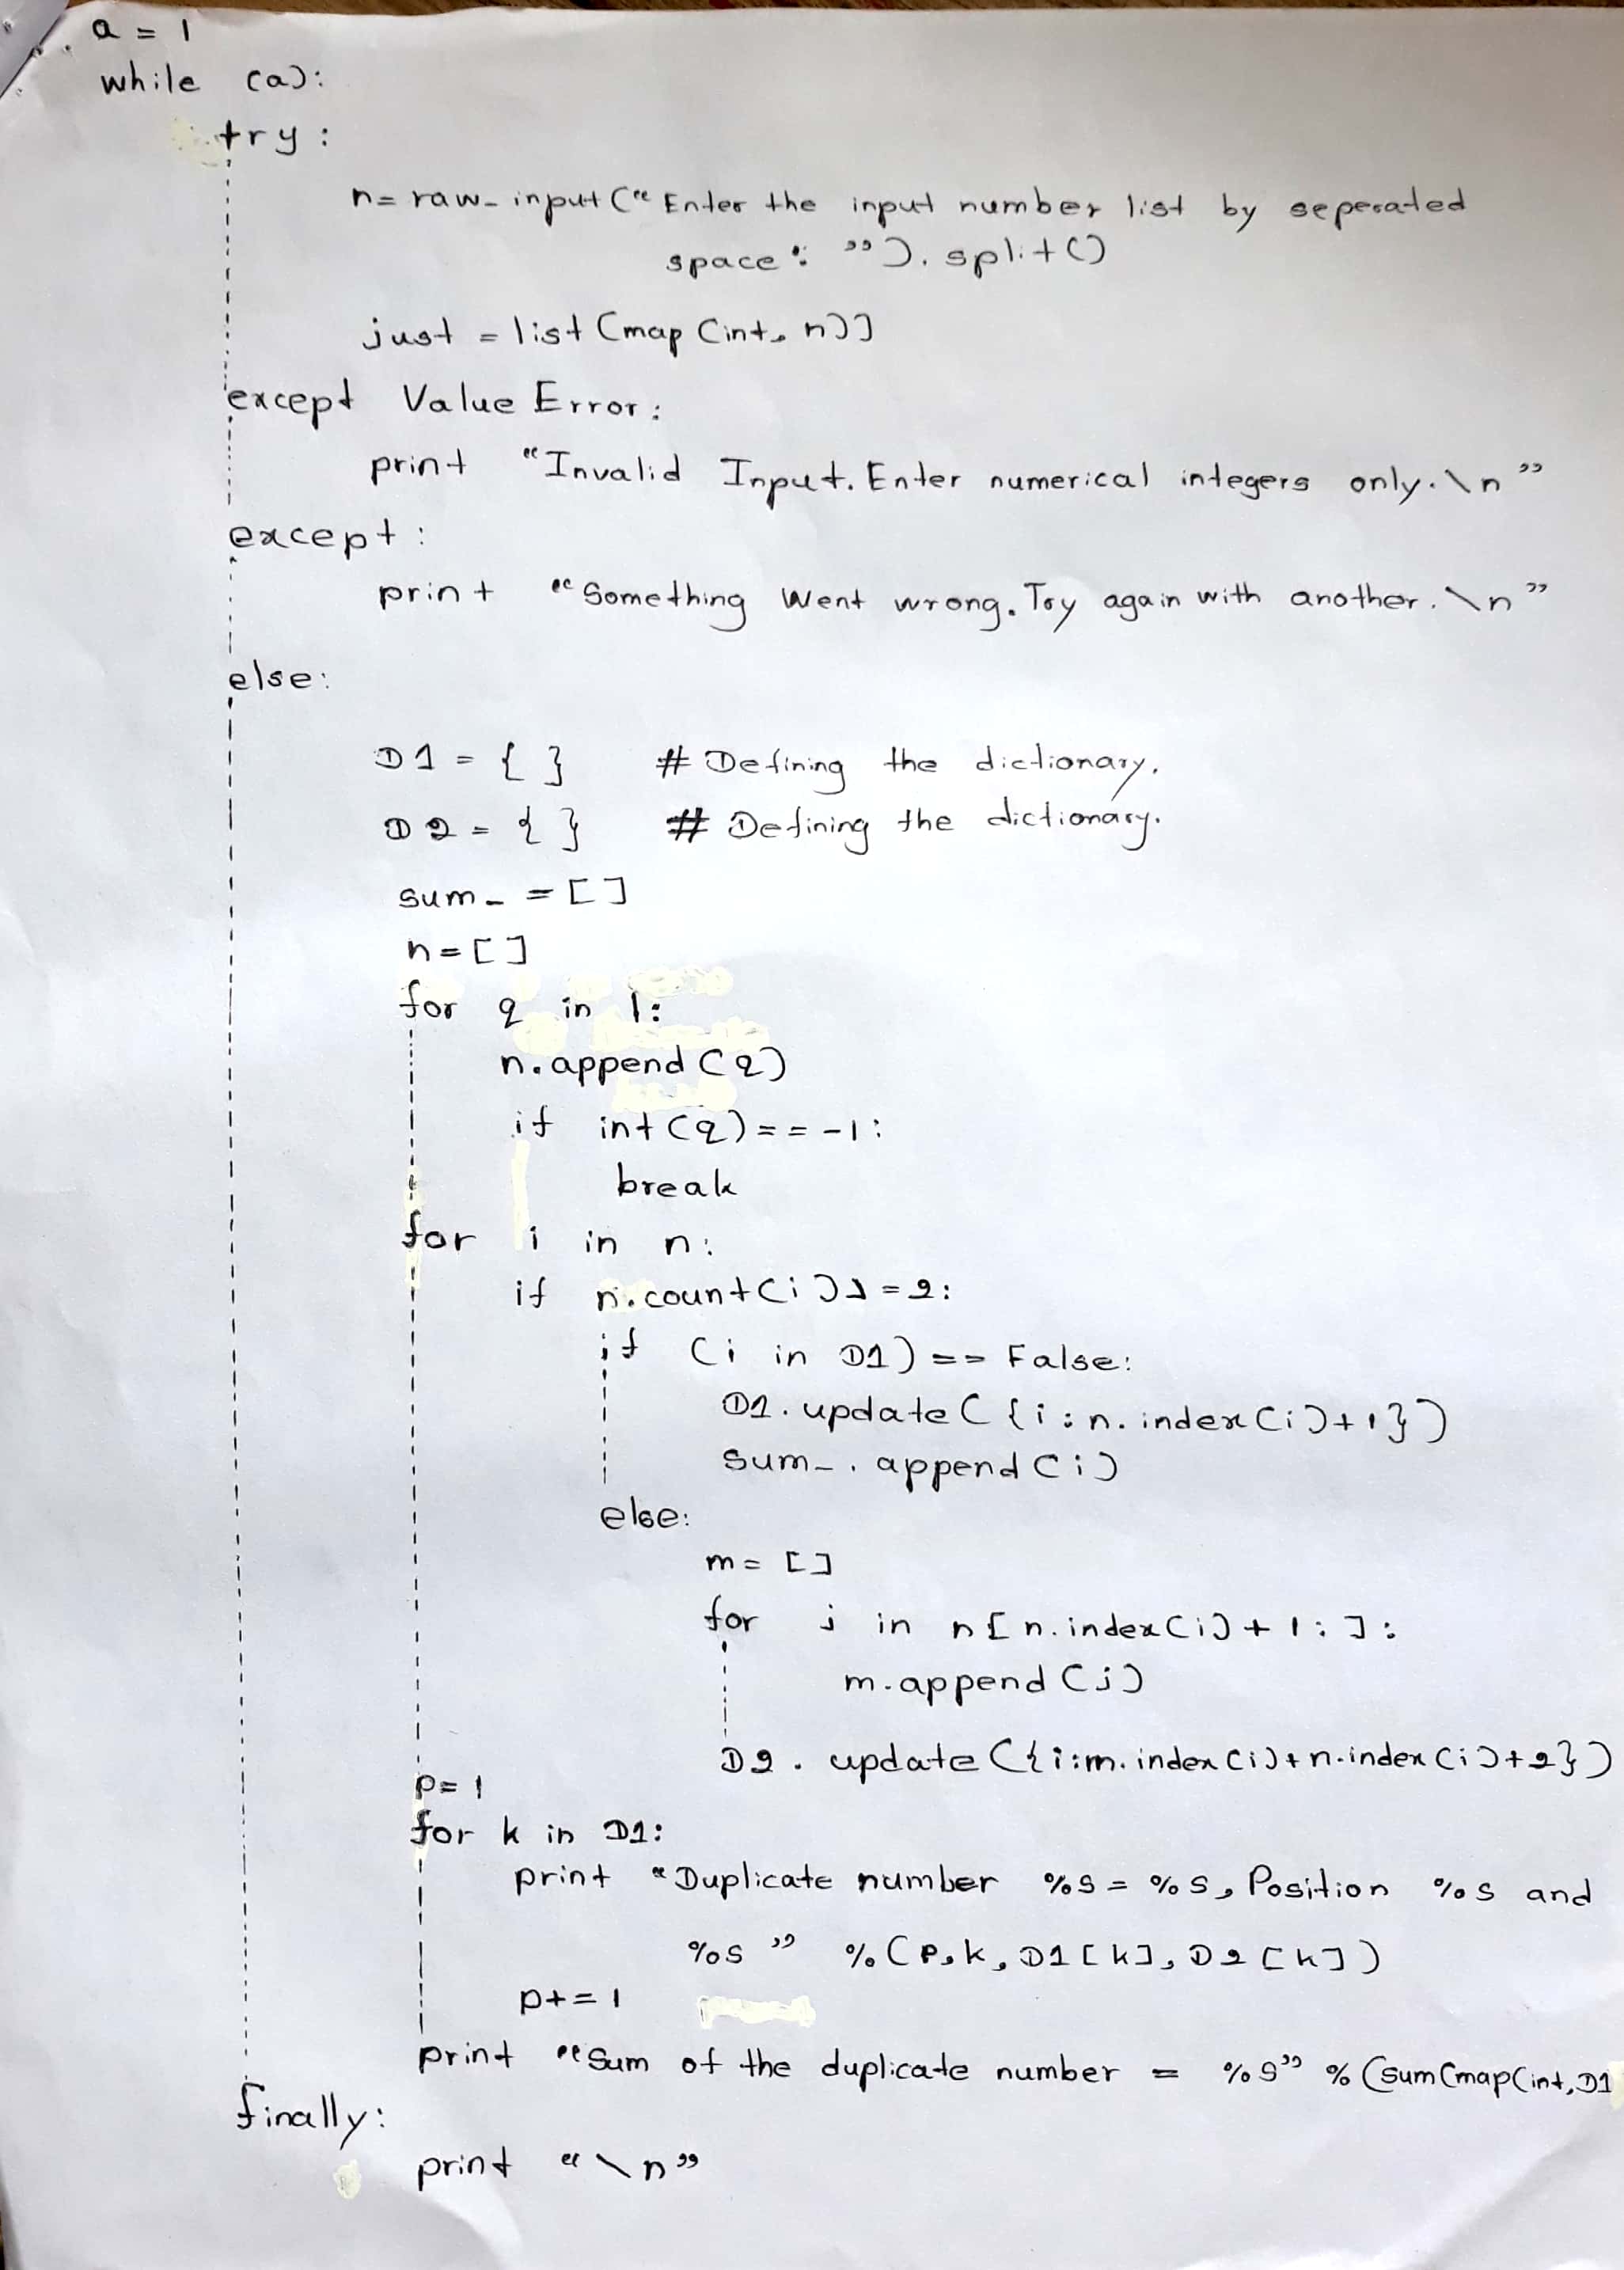 a = 1
while (a):
try :
n= raw_input (“ Enter the input number list by seperated
space : ”). split()
just = list (map (int, n))
except Value Error :
print “Invalid Input. Enter numerical integers only. \n”
except :
print “Something Went wrong. Try again with another. \n”
else:
D1 = { } # Defining the dictionary.
D2 = { } # Defining the dictionary.
sum_ = [ ]
n = [ ]
for q in l:
n.append (q)
if int (q) == -1 :
break
for i in n:
if n.count(i) = 2:
if (i in D1) == False:
D1. update ( {i : n. index (i)+1})
sum_. append (i)
else:
m = [ ]
for j in n [ n. index (i) + 1 : ] :
m.append (j)
D2 . update ({i:m. index (i)+n.index (i)+2})
p= 1
for k in D1:
print “Duplicate number %s = %s, Position %s and
%s ” % (p,k, D1 [k], D2 [k])
p+= 1
print “Sum of the duplicate number = %s” % (sum(map(int, D1
finally:
print “ \n”